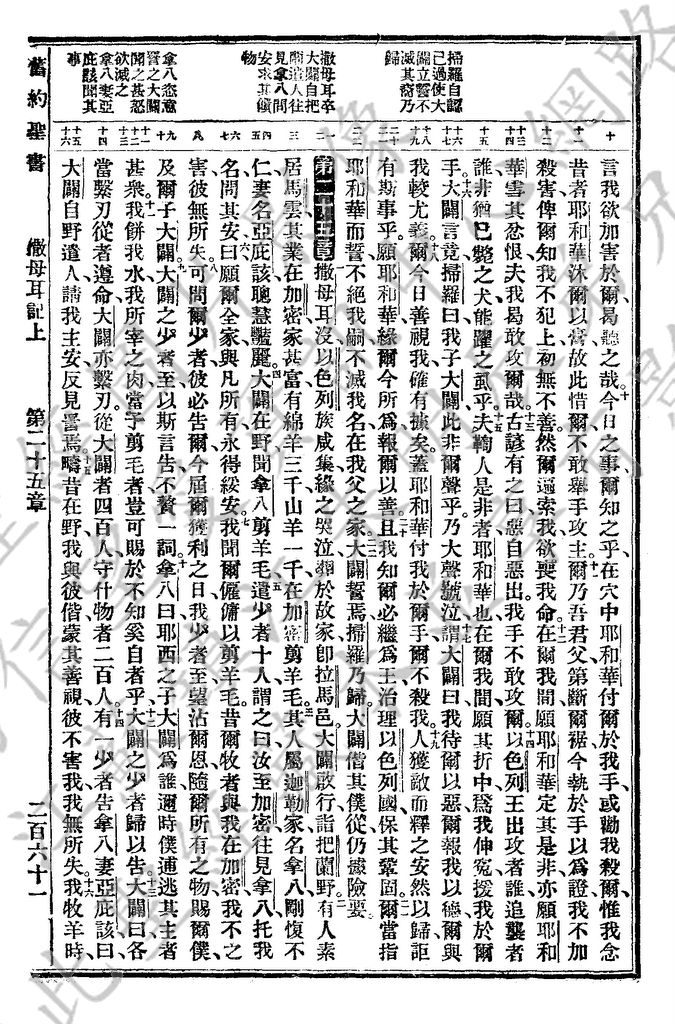 掃羅自認
已過使大
闢立誓不
滅其裔乃
歸
撒母耳卒
大闢自把
蘭遣人往
見拿八問
安求其饋
物
拿八恣意
詈之大闢
聞之甚怒
欲滅之
拿八妻亞
庇該聞其
事
言我欲加害於爾曷聽之哉今日之事爾知之乎在穴中耶和華付爾於我手或勸我殺爾惟我念
昔者耶和華沐爾以膏故此惜爾不敢舉手攻主爾乃吾君父第斷爾裾今執於手以爲證我不加
殺害俾爾知我不犯上初無不善然爾遍索我欲喪我命在爾我間願耶和華定其是非亦願耶和
華雪其忿恨夫我曷敢攻爾哉古諺有之曰惡自惡出我手不敢攻爾以色列王出攻者誰追襲者
誰非猶已斃之犬能躍之虱乎夫鞫人是非者耶和華也在爾我間願其折中爲我伸冤援我於爾
手大闢言竟掃羅曰我子大闢此非爾聲乎乃大聲號泣謂大闢曰我待爾以惡爾報我以德爾與
我較尤義爾今日善視我確有據矣蓋耶和華付我於爾手爾不殺我人獲敵而釋之安然以歸詎
有斯事乎願耶和華緣爾今所爲報爾以善且我知爾必繼爲王治理以色列國保其鞏固爾當指
耶和華而誓不絕我嗣不滅我名在我父之家大闢誓焉掃羅乃歸大闢偕其僕從仍據險要
第二十五章撒母耳沒以色列族咸集緣之哭泣葬於故家卽拉馬邑大闢啟行詣把蘭野有人素
居馬雲其業在加密家甚富有綿羊三千山羊一千在加密剪羊毛其人屬迦勒家名拿八剛愎不
仁妻名亞庇該聰慧豔麗大闢在野聞拿八剪羊毛遣少者十人謂之曰汝至加密往見拿八托我
名問其安曰願爾全家與凡所有永得綏安我聞爾僱傭以剪羊毛昔爾牧者與我在加密我不之
害彼無所失可問爾少者彼必告爾今屆爾獲利之日我少者至望沾爾恩隨爾所有之物賜爾僕
及爾子大闢大闢之少者至以斯言告不贅一詞拿八曰耶西之子大闢爲誰邇時僕逋逃其主者
甚衆我餅我水我所宰之肉當予剪毛者豈可賜於不知奚自者乎大闢之少者歸以告大闢曰各
當繫刃從者遵命大闢亦繫刃從大闢者四百人守什物者二百人有一少者告拿八妻亞庇該曰
大闢自野遣人請我主安反見詈焉疇昔在野我與彼偕蒙其善視彼不害我我無所失我牧羊時
舊約聖書　撒母耳記上　第二十五章　二百六十一